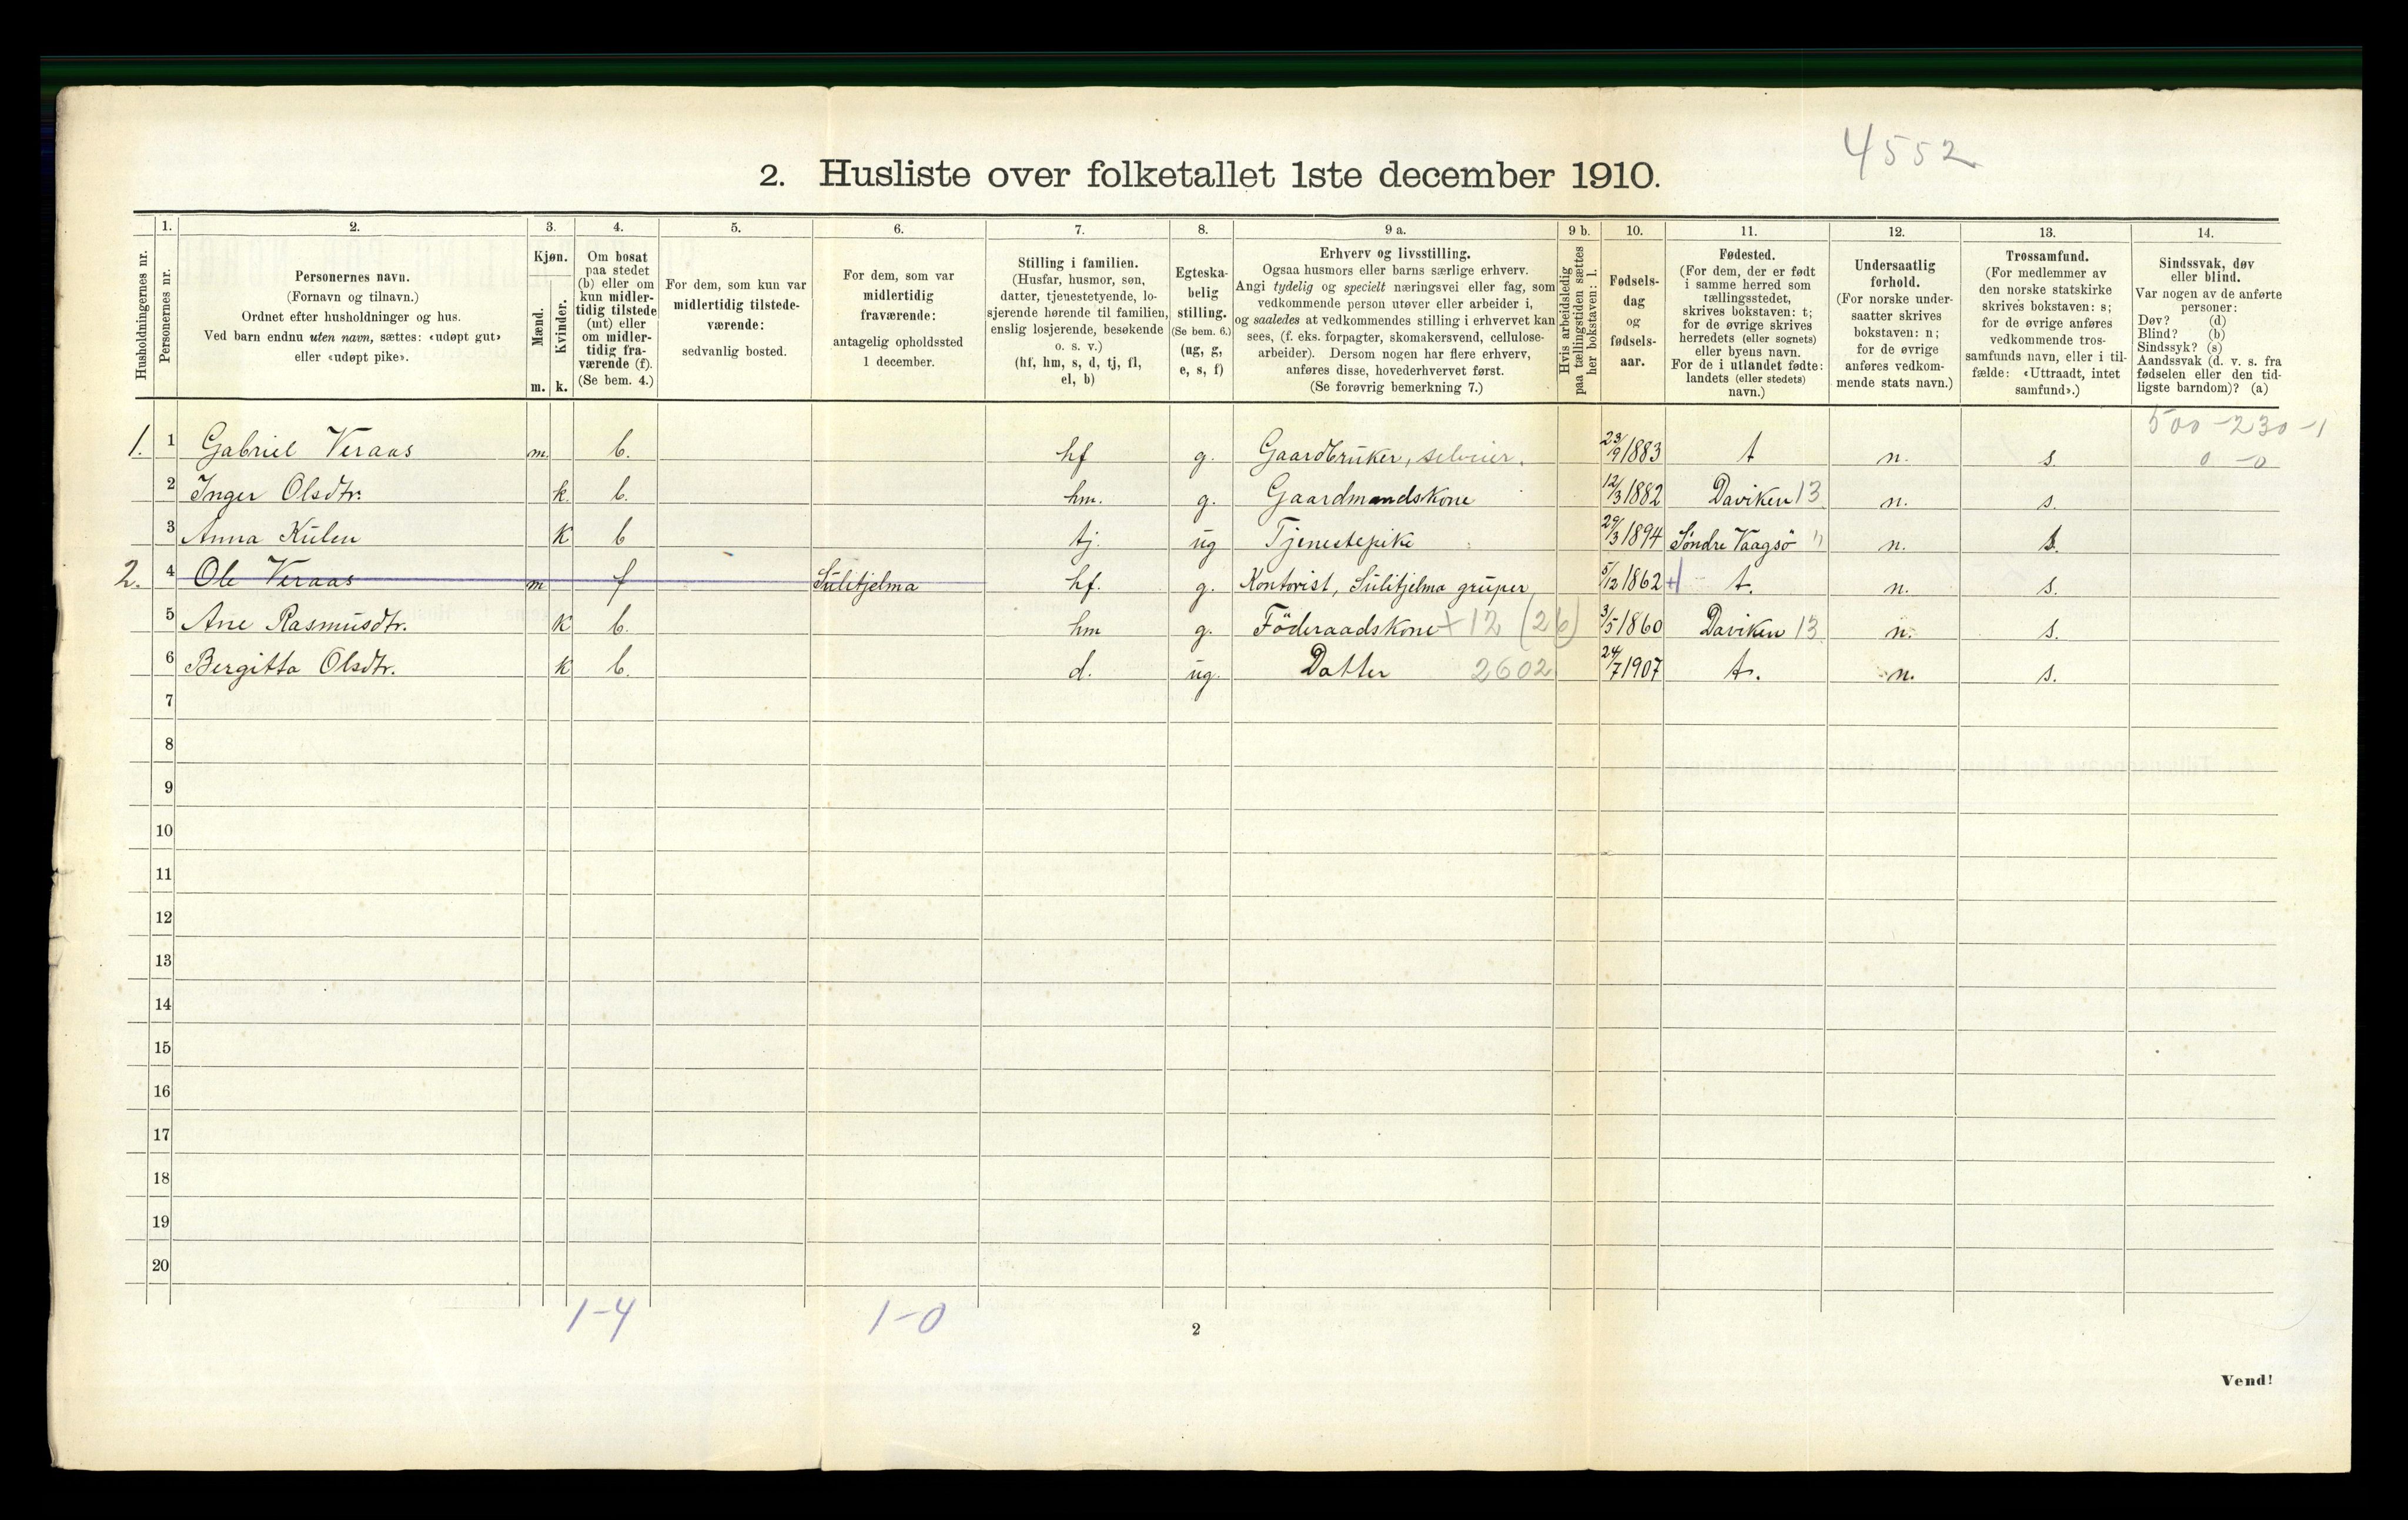 4552
2. Husliste over folketallet 1ste december 1910.
Husholdningernes nr.
1.
Personernes nr.
2.
Personernes navn.
(Fornavn og tilnavn.)
Ordnet efter husholdninger og hus.
Ved barn endnu uten navn, sættes: «udøpt gut»
eller «udøpt pike».
3.
Kjøn.
Mænd.
Kvinder.
m. k.
4.
Om bosat
paa stedet
(b) eller om
kun midler-
tidig tilstede
(mt) eller
om midler-
tidig fra-
værende (f).
(Se bem. 4.)
5.
For dem, som kun var
midlertidig tilstede-
værende:
sedvanlig bosted.
6.
For dem, som var
midlertidig
fraværende:
antagelig opholdssted
1 december.
7.
Stilling i familien.
(Husfar, husmor, søn,
datter, tjenestetyende, lo-
sjerende hørende til familien,
enslig losjerende, besøkende
o. s. v.)
(hf, hm, s, d, tj, fl,
el, b)
8.
Egteska-
belig
stilling.
(Se bem. 6.)
(ug, g,
e, s, f)
9 a.
Erhverv og livsstilling.
Ogsaa husmors eller barns særlige erhverv.
Angi tydelig og specielt næringsvei eller fag, som
vedkommende person utøver eller arbeider i,
og saaledes at vedkommendes stilling i erhvervet kan
sees, (f. eks. forpagter, skomakersvend, cellulose-
arbeider). Dersom nogen har flere erhverv,
anføres disse, hovederhvervet først.
(Se forøvrig bemerkning 7.)
9 b.
Hvis arbeidsledig
paa tællingstiden sættes
her bokstaven: l.
10.
Fødsels-
dag
og
fødsels-
aar.
11.
Fødested.
(For dem, der er født
i samme herred som
tællingsstedet,
skrives bokstaven: t;
for de øvrige skrives
herredets (eller sognets)
eller byens navn.
For de i utlandet fødte:
landets (eller stedets)
navn.)
12.
Undersaatlig
forhold.
(For norske under-
saatter skrives
bokstaven: n;
for de øvrige
anføres vedkom-
mende stats navn.)
13.
Trossamfund.
(For medlemmer av
den norske statskirke
skrives bokstaven: s;
for de øvrige anføres
vedkommende tros-
samfunds navn, eller i til-
fælde: «Uttraadt, intet
samfund».)
14.
Sindssvak, døv
eller blind.
Var nogen av de anførte
personer:
Døv? (d)
Blind? (b)
Sindssyk? (s)
Aandssvak (d. v. s. fra
fødselen eller den tid-
ligste barndom)? (a)
500-230-1
1. 1 Gabriel Veraas m. b. hf g. Gaardbruker, selveier. 23/9 1883 t n. s. 0 -0
2 Inger Olsdtr. k. b. hm. g. Gaardmandskone 12/3 1882 Daviken 13 n. s.
3 Anna Kulen k b tj. ug Tjenestepike 29/3 1894 Søndre Vaagsö " n. s.
2. 4 Ole Veraas m f Sulitjelma hf. g. Kontorist, Sulitjelma gruper, 5/12 1862 + t. n. s.
5 Ane Rasmusdtr. k b. hm g. Föderaadskone +12 (26) 3/5 1860 Daviken 13 n. s.
6 Bergitta Olsdtr. k b. d. ug. Datter 2602 24/7 1907 t. n. s.
7
8
9
10
11
12
13
14
15
16
17
18
19
20
1-4 1-0
2
Vend!